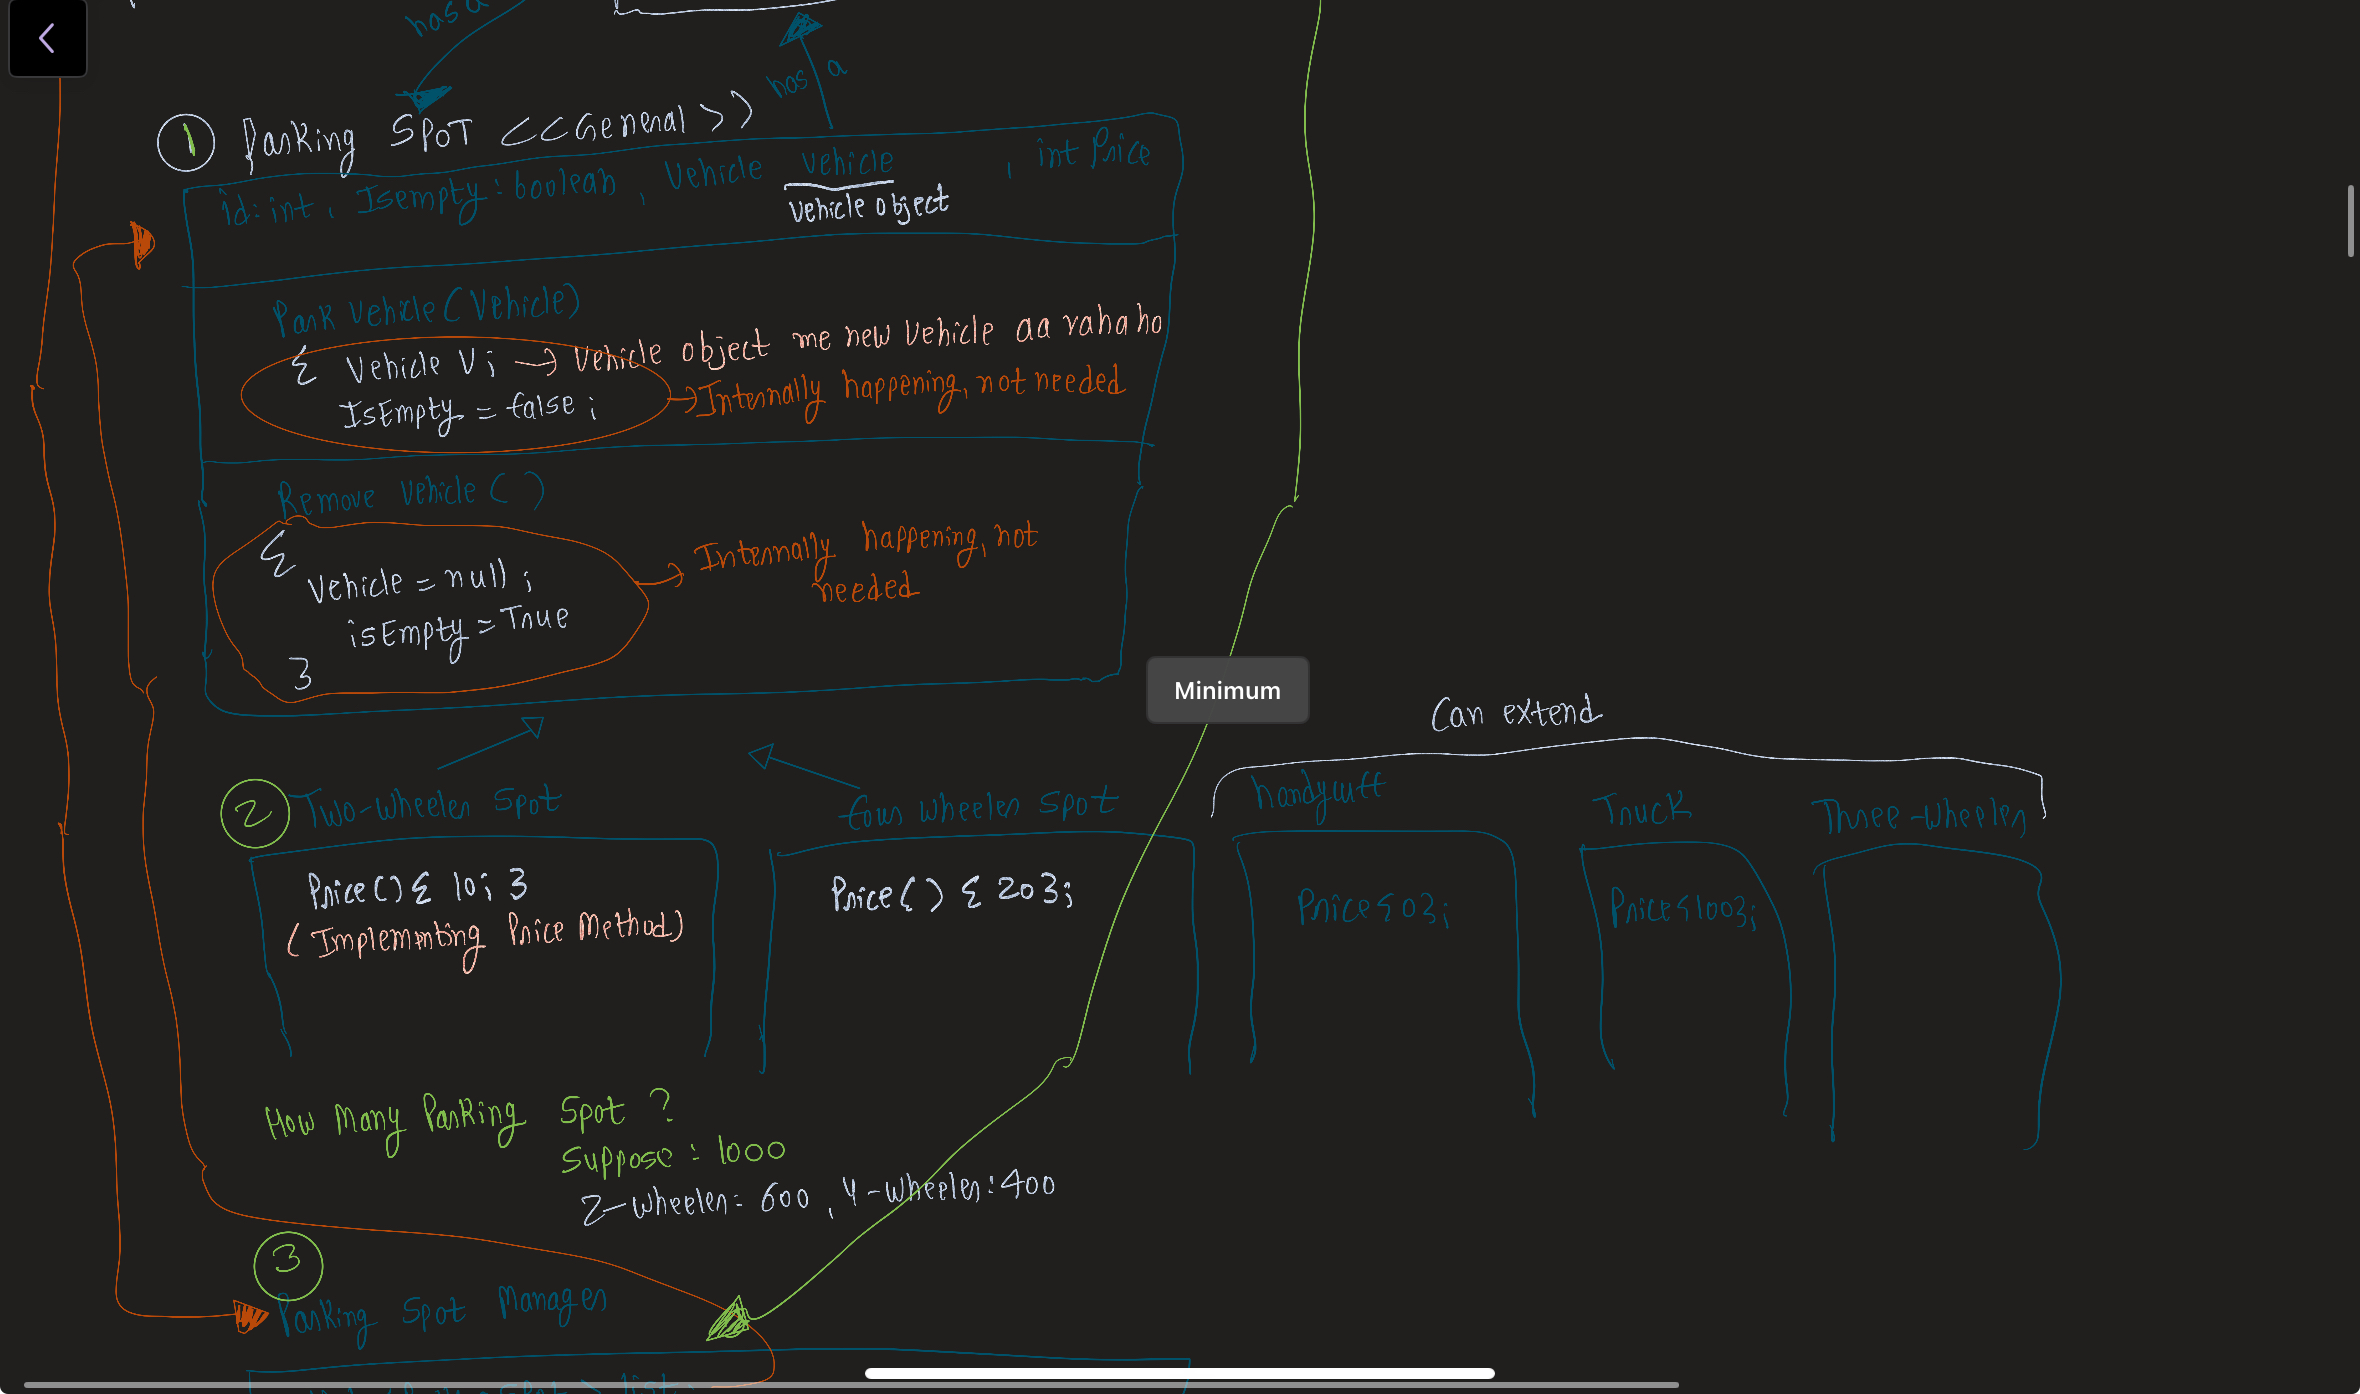 has a
has a
1 Parking SPOT <<General>>
id: int, Isempty: boolean, Vehicle vehicle, int Price
Vehicle object
Park Vehicle (Vehicle)
{ Vehicle V; → Vehicle object me new Vehicle aa raha ho
IsEmpty = false; → Internally happening, not needed
Remove Vehicle ( )
{
Vehicle = null;
isEmpty = True
}
→ Internally happening, not
needed
Minimum
Can extend
2 Two-Wheeler Spot
four wheeler spot
Truck
Three-wheeler
Price() { 10; }
(Implemmting Price Method)
Price() { 20 };
Price { 0 };
Price { 100 };
How Many Parking Spot ?
Suppose : 1000
2-wheeler = 600, 4-wheeler : 400
3
Parking Spot Manager
list